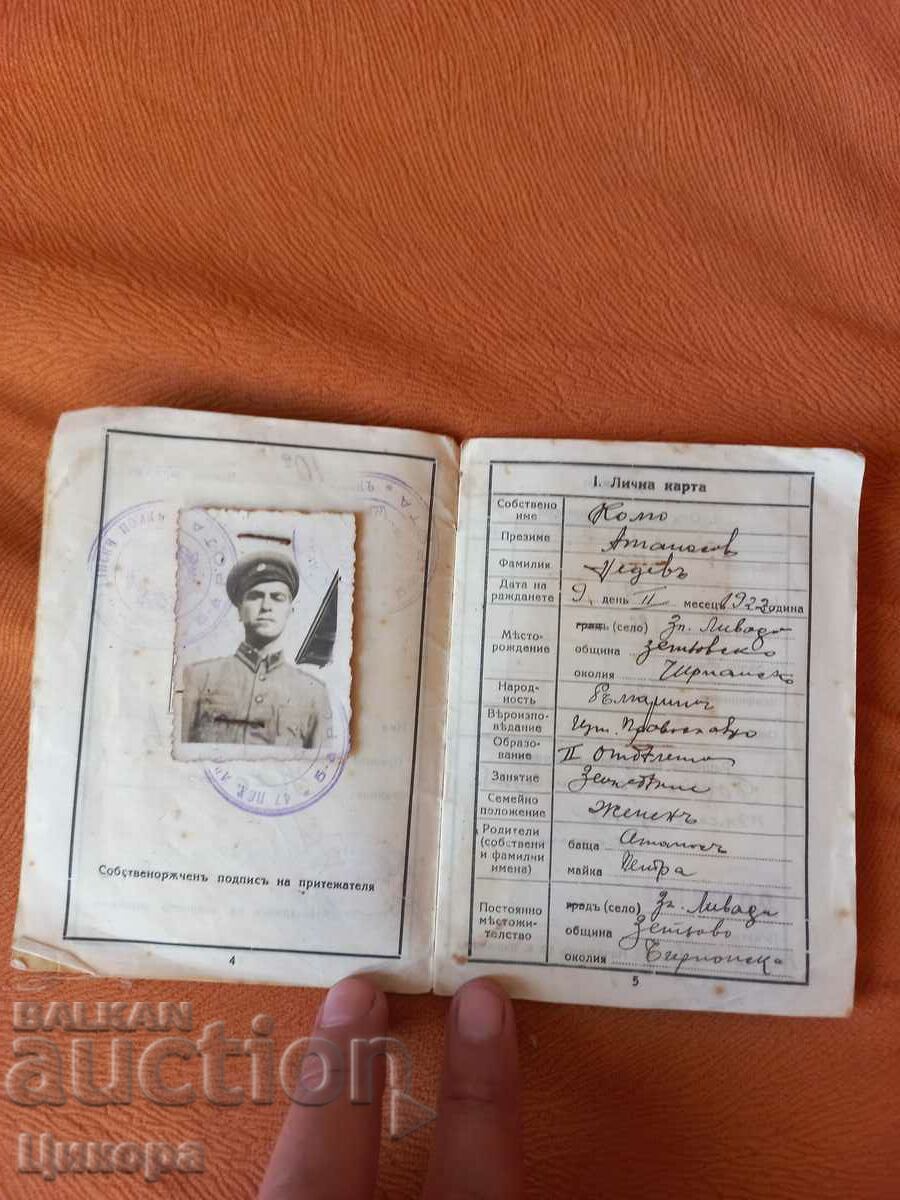 47 ПЕХ.
РОТА
Собственоржченъ подписъ на притежателя
4
I. Лична карта
Собствено име Кольо
Презиме Атанасов
Фамилия Недевъ
Дата на раждането 9 день II месецъ 1922 година
Мѣсто-рождение градъ (село) Зл. Ливада
община Зетьовско
околия Чирпанско
Народ-ность Българинъ
Вѣроизпо-вѣдание Изт. Православно
Образо-вание II отделение
Занятие
Семейно положение Жененъ
Родители (собствени и фамилни имена) баща Атанасъ
майка Петра
Постоянно мѣстожи-телство градъ (село) Зл. Ливада
община Зетьово
околия Чирпанска
5
BALKAN
auction
Цикора